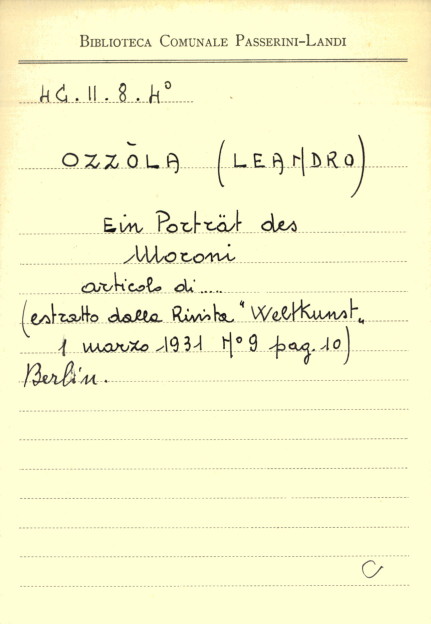 BIBLIOTECA COMUNALE PASSERINI-LANDI
4G.II.8.4°
OZZÒLA (LEANDRO)
Ein Porträt des
Moroni
articolo di.....
(estratto dalla Rivista "Weltkunst„
1 marzo 1931 N° 9 pag. 10)
Berlin.
C